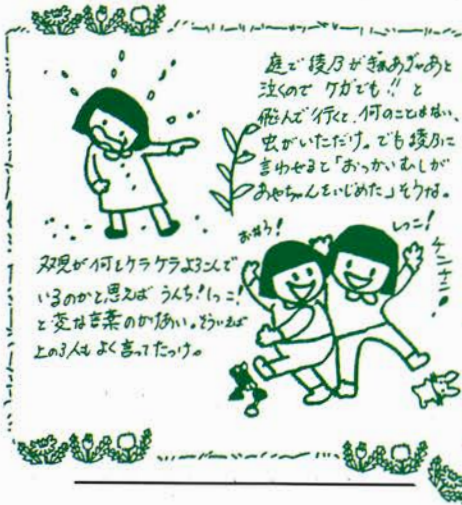 庭で綾乃がぎゃあぎゃあと
泣くので ケガでも!! と
飛んで行くと、何のことはない、
虫がいただけ。でも綾乃に
言わせると「おっかいむしが
あやちゃんをいじめた」そうな。
おなら!
しっこ!
ケンケン!
双児が何をケラケラよろこんで
いるのかと思えば うんち!しっこ!
と変な言葉のかけあい。そういえば
上の3人もよく言ってたっけ。